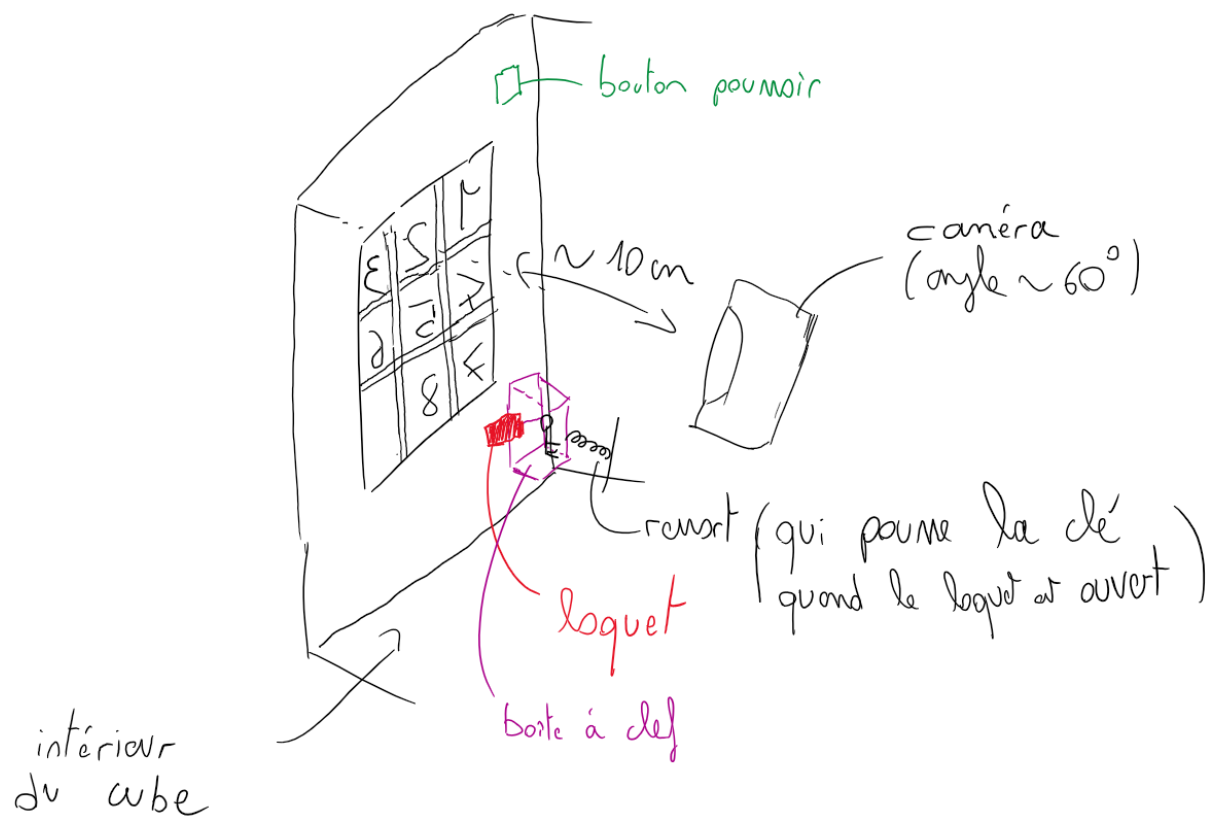 bouton poussoir
1
2
3
4
5
6
7
8
~ 10 cm
caméra
(angle ~ 60°)
ressort (qui pousse la clé
quand le loquet est ouvert)
loquet
boîte à clef
intérieur
du cube